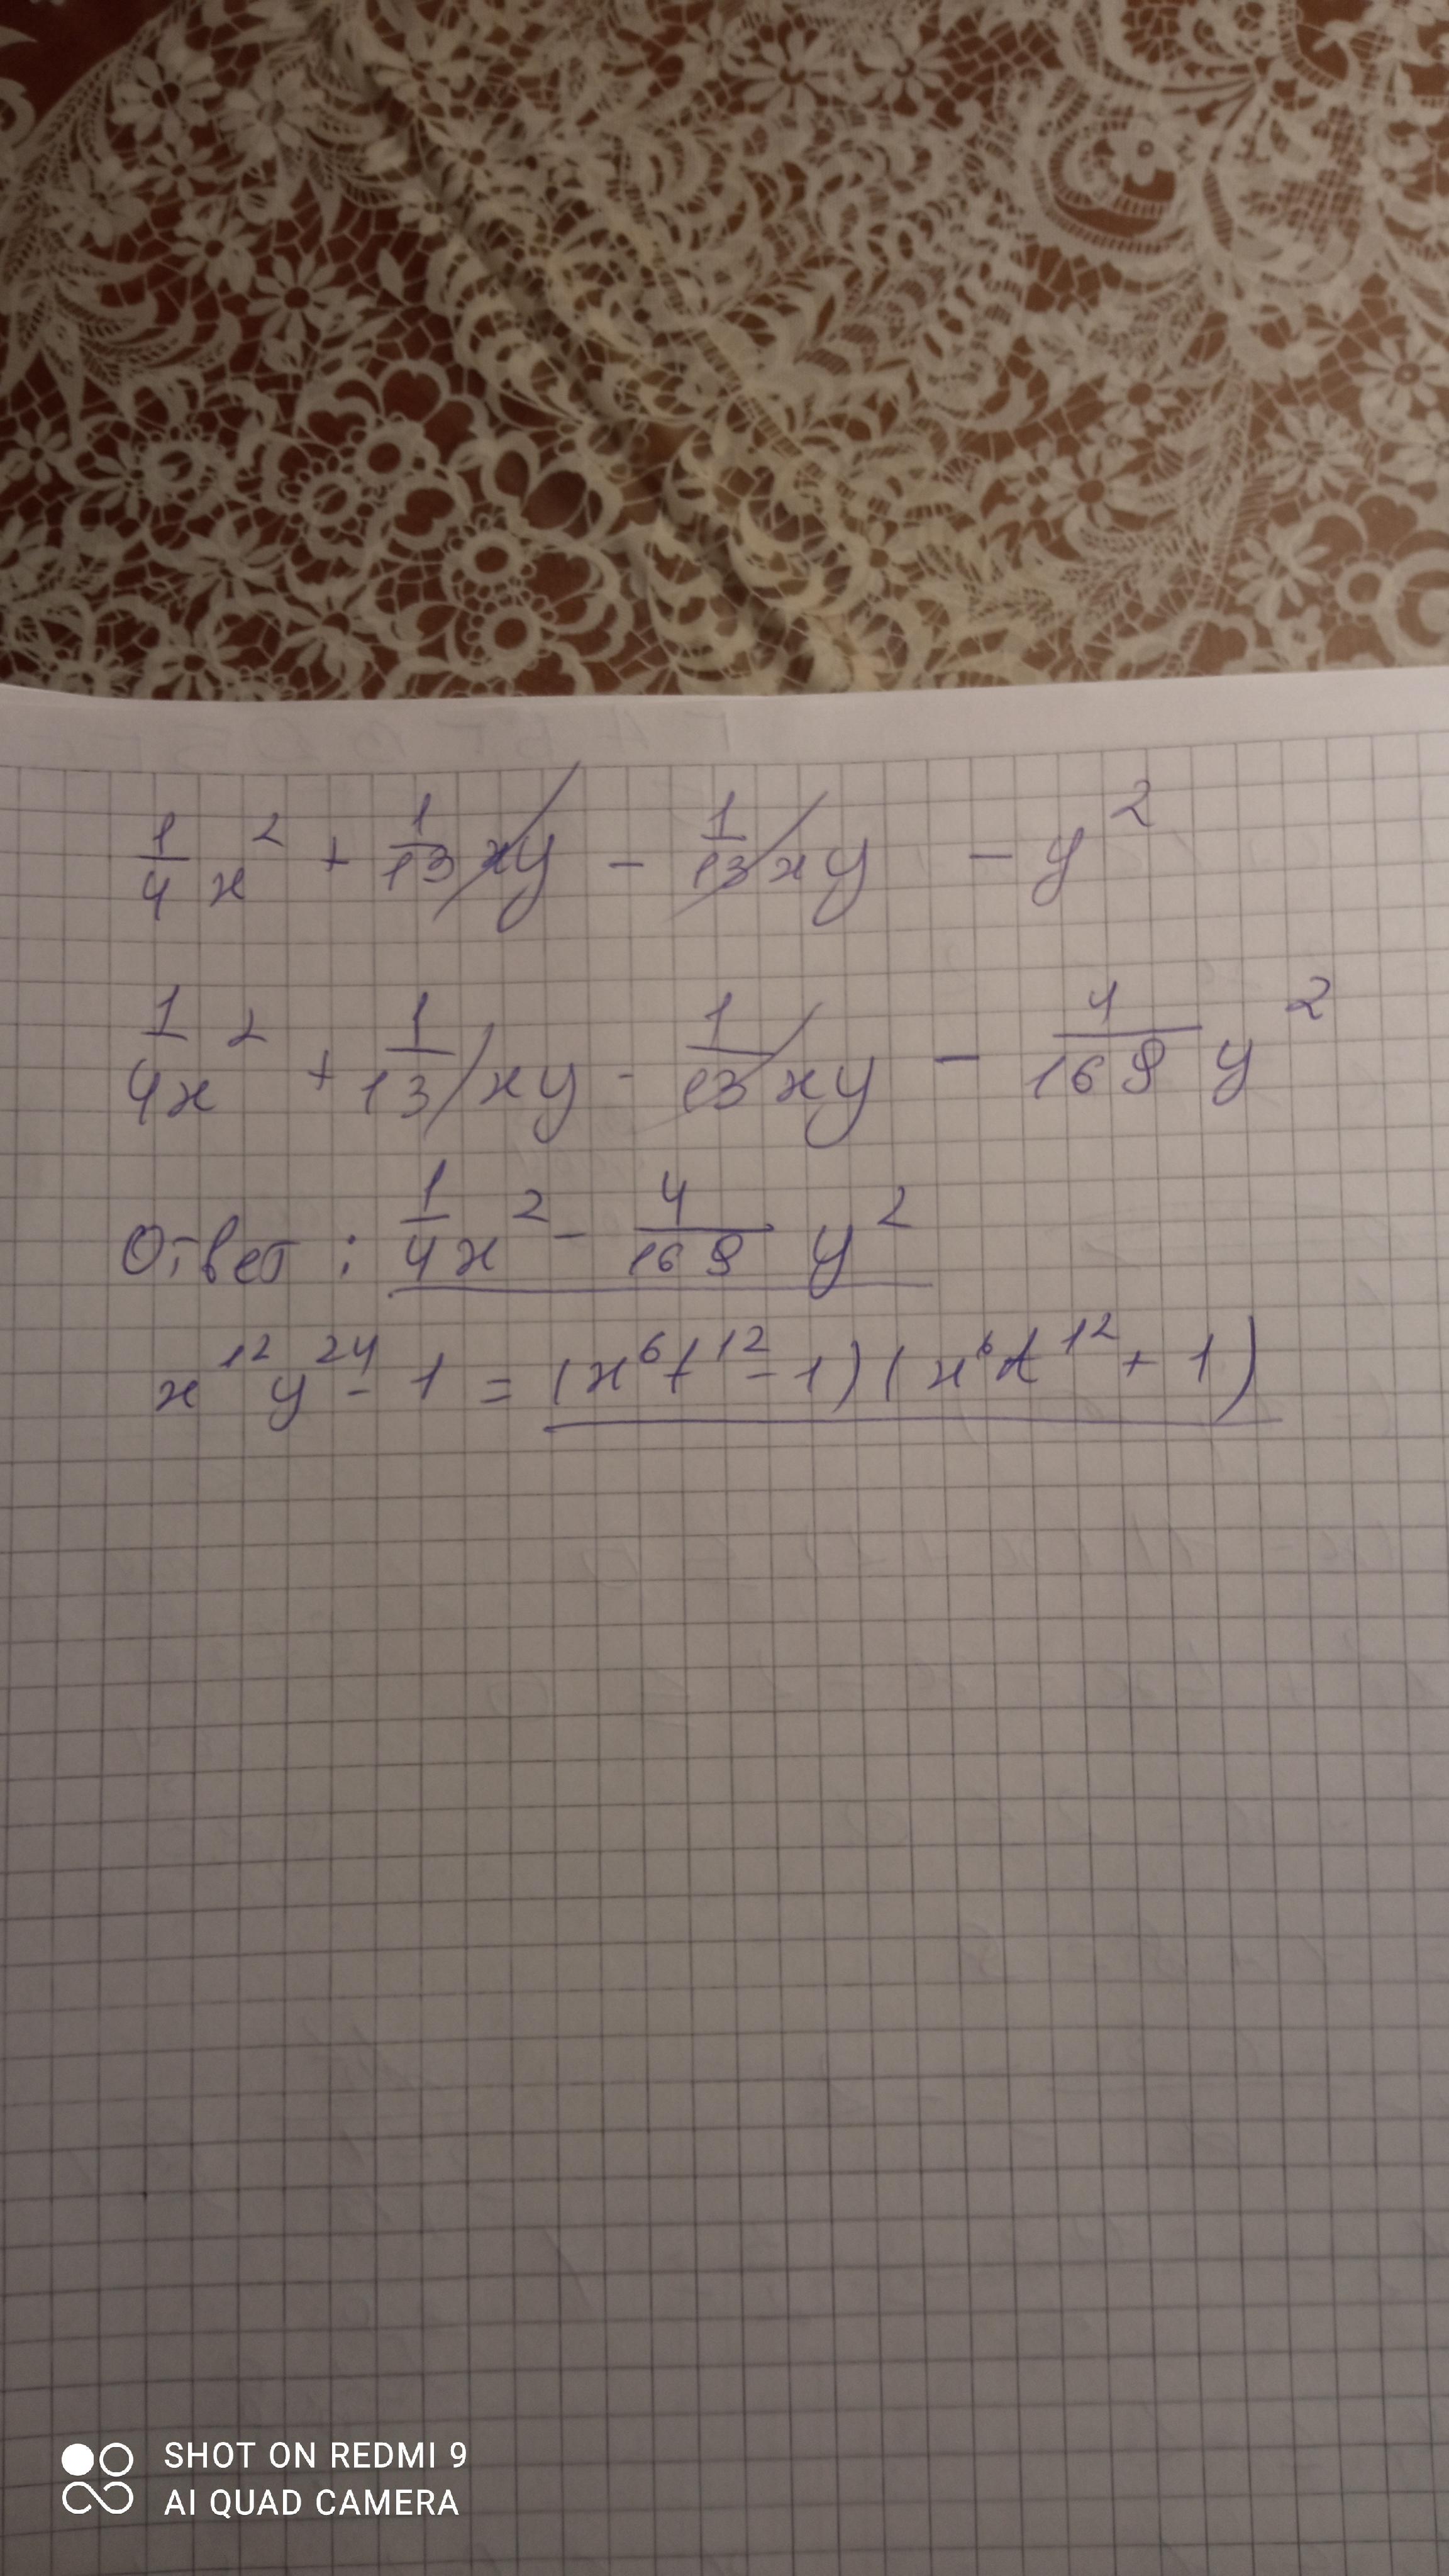 1/4 x² + 1/13 xy - 1/13 xy - y²
1/4x² + 1/13 xy - 1/13 xy - 4/169 y²
Ответ: 1/4x² - 4/169 y²
x¹² y²⁴ - 1 = (x⁶t¹² - 1)(x⁶t¹² + 1)
SHOT ON REDMI 9
AI QUAD CAMERA